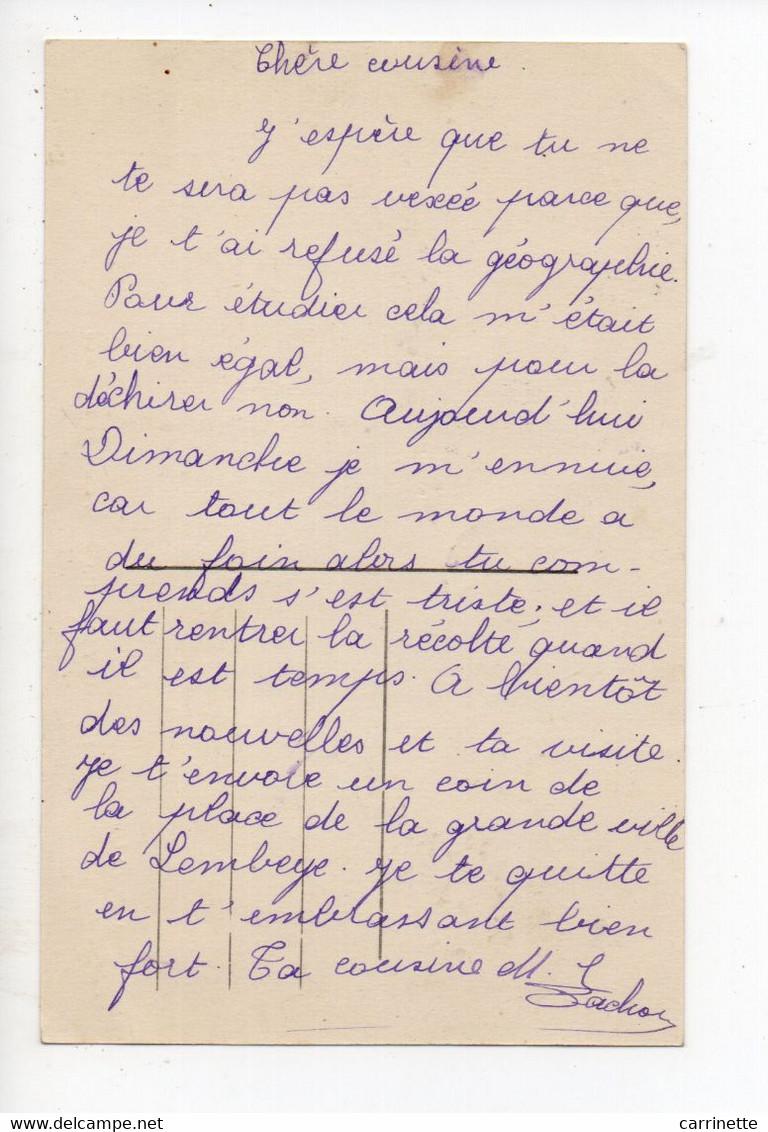 Chère cousine.
J'espère que tu ne
te sera pas vexée parce que,
je t'ai refusé la géographie.
Pour étudier cela m'était
bien égal, mais pour la
déchirer non. Aujourd'hui
Dimanche je m'ennuie,
car tout le monde a
du foin alors tu com-
prends s'est triste, et il
faut rentrer la récolte quand
il est temps. A bientôt
des nouvelles et ta visite.
Je t'envoie un coin de
la place de la grande ville
de Lembeye. Je te quitte
en t'embrassant bien
fort. Ta cousine M. L
carrinette
Delcampe.net